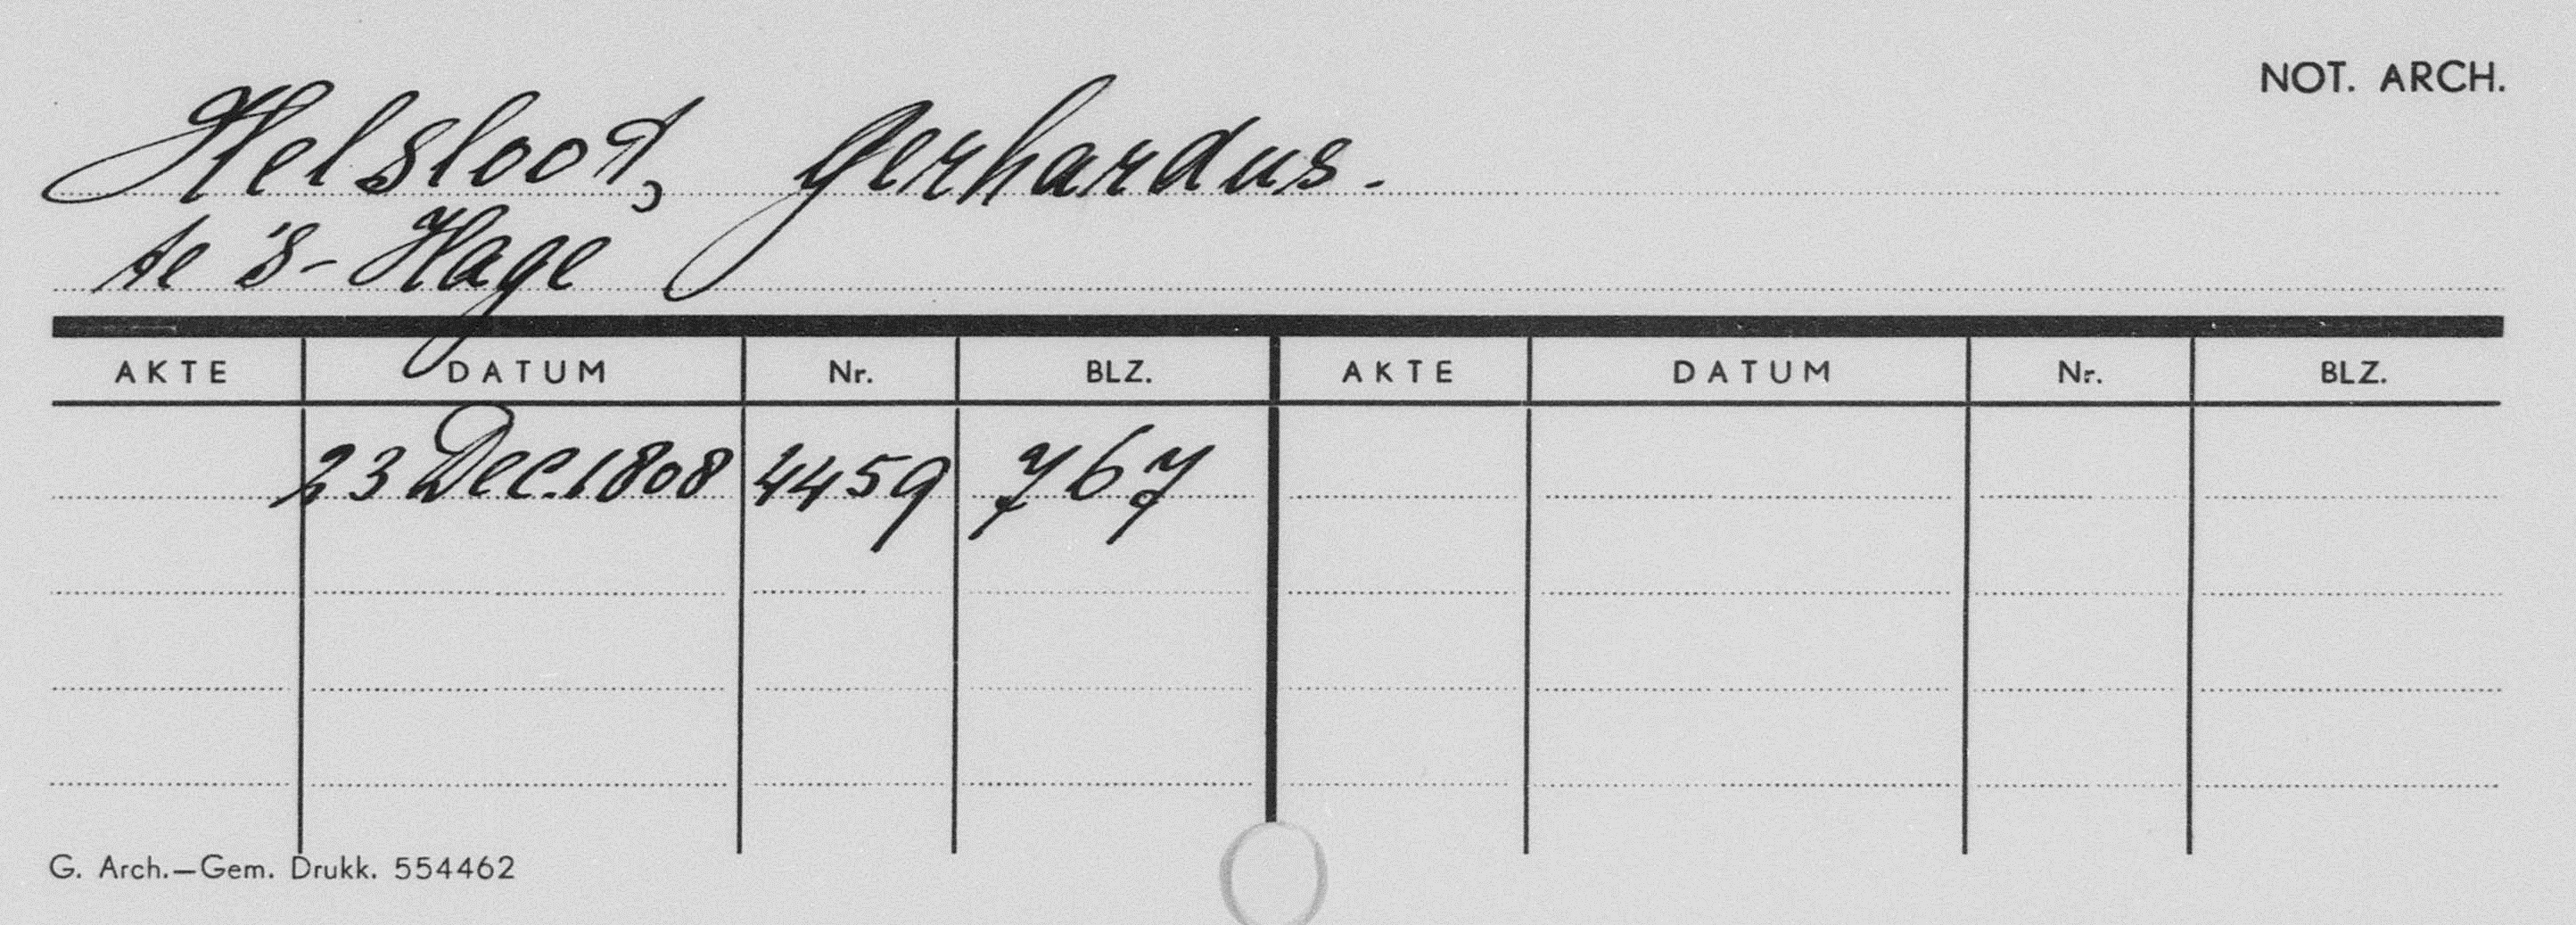 NOT. ARCH.
Helsloot, Gerhardus.
te 's-Hage
AKTE DATUM Nr. BLZ. AKTE DATUM Nr. BLZ.
23 Dec. 1808 4459 767
G. Arch.—Gem. Drukk. 554462